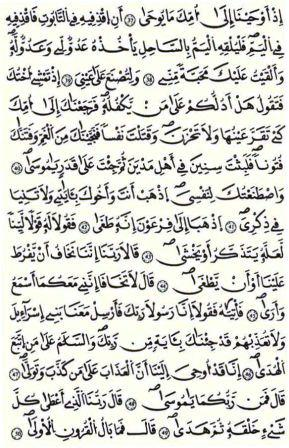 إِذَ اَوْحَيْنَا إِلَىٰ أُمِّكَ مَا يُوحَىٰ أَنِ اِقْذِفِيهِ فِي التَّابُوتِ فَاقْذِفِيهِ
فِي الْيَمِّ فَلْيُلْقِهِ الْيَمُّ بِالسَّاحِلِ يَأْخُذْهُ عَدُوٌّ لِّي وَعَدُوٌّ لَّهُ
وَأَلْقَيْتُ عَلَيْكَ مَحَبَّةً مِّنِّي وَلِتُصْنَعَ عَلَىٰ عَيْنِي إِذْ تَمْشِي أُخْتُكَ
فَتَقُولُ هَلْ أَدُلُّكُمْ عَلَىٰ مَن يَكْفُلُهُ فَرَجَعْنَاكَ إِلَىٰ أُمِّكَ
كَيْ تَقَرَّ عَيْنُهَا وَلَا تَحْزَنَ وَقَتَلْتَ نَفْسًا فَنَجَّيْنَاكَ مِنَ الْغَمِّ وَفَتَنَّاكَ
فُتُونًا فَلَبِثْتَ سِنِينَ فِي أَهْلِ مَدْيَنَ ثُمَّ جِئْتَ عَلَىٰ قَدَرٍ يَامُوسَىٰ
وَاصْطَنَعْتُكَ لِنَفْسِي اذْهَبْ أَنتَ وَأَخُوكَ بِآيَاتِي وَلَا تَنِيَا
فِي ذِكْرِي اذْهَبَا إِلَىٰ فِرْعَوْنَ إِنَّهُ طَغَىٰ فَقُولَا لَهُ قَوْلًا لَّيِّنًا
لَّعَلَّهُ يَتَذَكَّرُ أَوْ يَخْشَىٰ قَالَا رَبَّنَا إِنَّنَا نَخَافُ أَن يَفْرُطَ
عَلَيْنَا أَوْ أَن يَطْغَىٰ قَالَ لَا تَخَافَا إِنَّنِي مَعَكُمَا أَسْمَعُ
وَأَرَىٰ فَأْتِيَاهُ فَقُولَا إِنَّا رَسُولَا رَبِّكَ فَأَرْسِلْ مَعَنَا بَنِي إِسْرَائِيلَ
وَلَا تُعَذِّبْهُمْ قَدْ جِئْنَاكَ بِآيَةٍ مِّن رَّبِّكَ وَالسَّلَامُ عَلَىٰ مَنِ اتَّبَعَ
الْهُدَىٰ إِنَّا قَدْ أُوحِيَ إِلَيْنَا أَنَّ الْعَذَابَ عَلَىٰ مَن كَذَّبَ وَتَوَلَّىٰ
قَالَ فَمَن رَّبُّكُمَا يَامُوسَىٰ قَالَ رَبُّنَا الَّذِي أَعْطَىٰ كُلَّ
شَيْءٍ خَلْقَهُ ثُمَّ هَدَىٰ قَالَ فَمَا بَالُ الْقُرُونِ الْأُولَىٰ